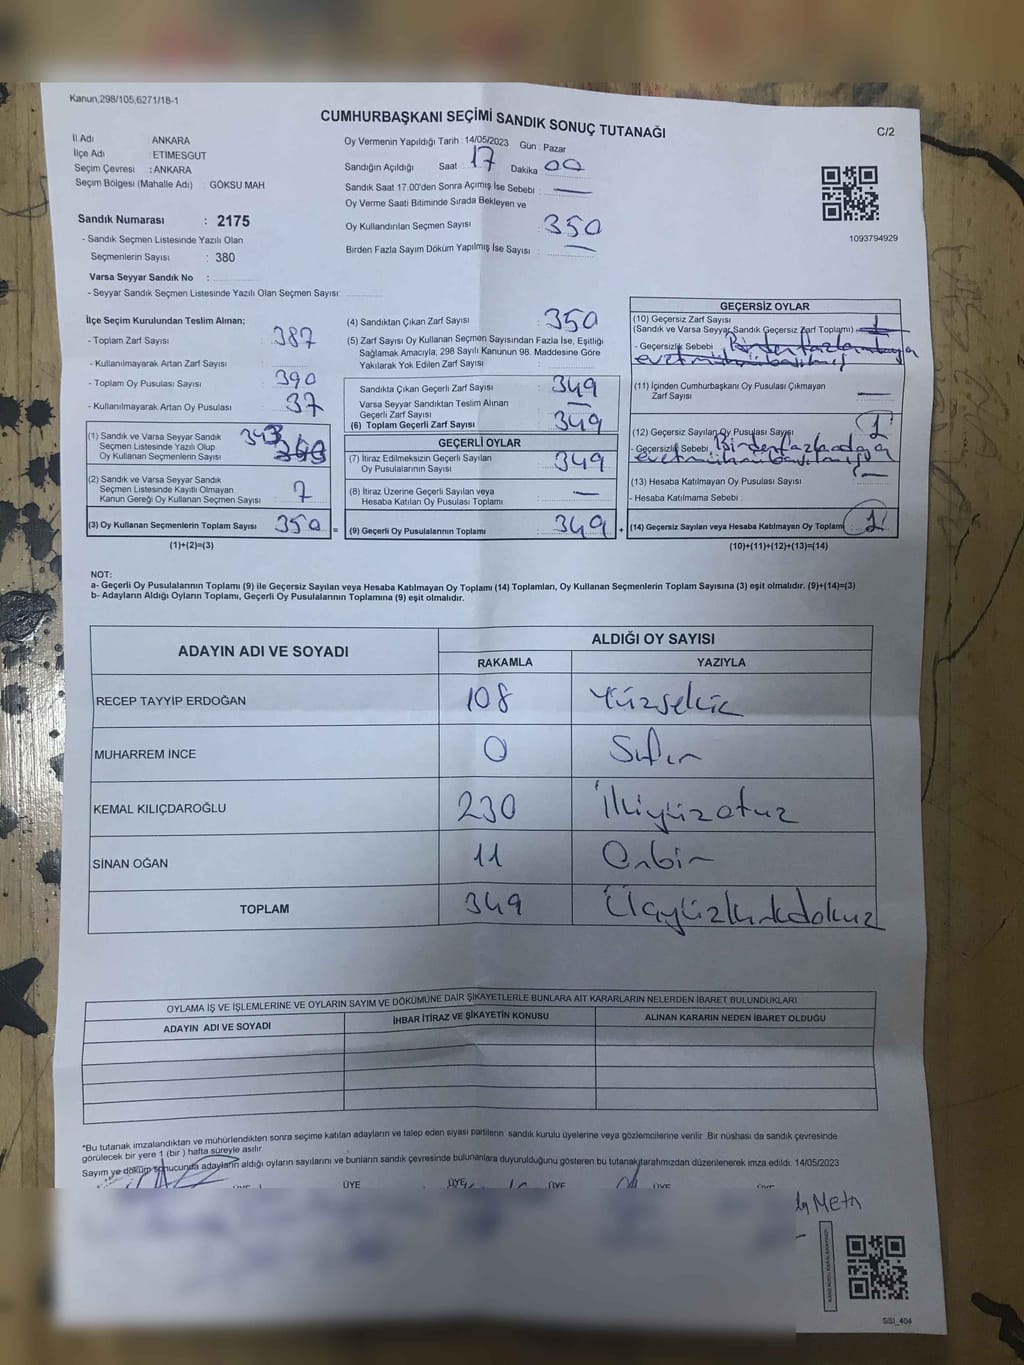 Kanun,298/105,6271/18-1
CUMHURBAŞKANI SEÇİMİ SANDIK SONUÇ TUTANAĞI
C/2
İl Adı : ANKARA
İlçe Adı : ETIMESGUT
Seçim Çevresi : ANKARA
Seçim Bölgesi (Mahalle Adı) : GÖKSU MAH
Oy Vermenin Yapıldığı Tarih : 14/05/2023 Gün : Pazar
Sandığın Açıldığı Saat : 17 Dakika 00
Sandık Saat 17.00'den Sonra Açımış İse Sebebi : —
Oy Verme Saati Bitiminde Sırada Bekleyen ve
Oy Kullandırılan Seçmen Sayısı : 350
Birden Fazla Sayım Döküm Yapılmış İse Sayısı : —
1093794929
Sandık Numarası : 2175
- Sandık Seçmen Listesinde Yazılı Olan
Seçmenlerin Sayısı : 380
Varsa Seyyar Sandık No :
- Seyyar Sandık Seçmen Listesinde Yazılı Olan Seçmen Sayısı:
İlçe Seçim Kurulundan Teslim Alınan;
- Toplam Zarf Sayısı : 387
- Kullanılmayarak Artan Zarf Sayısı :
- Toplam Oy Pusulası Sayısı : 390
- Kullanılmayarak Artan Oy Pusulası : 37
(1) Sandık ve Varsa Seyyar Sandık
Seçmen Listesinde Yazılı Olup
Oy Kullanan Seçmenlerin Sayısı 343
(2) Sandık ve Varsa Seyyar Sandık
Seçmen Listesinde Kayıtlı Olmayan
Kanun Gereği Oy Kullanan Seçmen Sayısı : 7
(3) Oy Kullanan Seçmenlerin Toplam Sayısı : 350 =
(1)+(2)=(3)
(4) Sandıktan Çıkan Zarf Sayısı : 350
(5) Zarf Sayısı Oy Kullanan Seçmen Sayısından Fazla İse, Eşitliği
Sağlamak Amacıyla, 298 Sayılı Kanunun 98. Maddesine Göre
Yakılarak Yok Edilen Zarf Sayısı
Sandıkta Çıkan Geçerli Zarf Sayısı : 349
Varsa Seyyar Sandıktan Teslim Alınan
Geçerli Zarf Sayısı : —
(6) Toplam Geçerli Zarf Sayısı : 349
GEÇERLİ OYLAR
(7) İtiraz Edilmeksizin Geçerli Sayılan
Oy Pusulalarının Sayısı : 349
(8) İtiraz Üzerine Geçerli Sayılan veya
Hesaba Katılan Oy Pusulası Toplamı : —
(9) Geçerli Oy Pusulalarının Toplamı : 349 +
GEÇERSİZ OYLAR
(10) Geçersiz Zarf Sayısı
(Sandık ve Varsa Seyyar Sandık Geçersiz Zarf Toplamı) : 1
- Geçersizlik Sebebi : Birden fazla adaya
evet mührü basılmış
(11) İçinden Cumhurbaşkanı Oy Pusulası Çıkmayan
Zarf Sayısı : —
(12) Geçersiz Sayılan Oy Pusulası Sayısı : 1
- Geçersizlik Sebebi : Birden fazla adaya
evet mührü basılmış
(13) Hesaba Katılmayan Oy Pusulası Sayısı : —
- Hesaba Katılmama Sebebi :
(14) Geçersiz Sayılan veya Hesaba Katılmayan Oy Toplamı : 1
(10)+(11)+(12)+(13)=(14)
NOT:
a- Geçerli Oy Pusulalarının Toplamı (9) ile Geçersiz Sayılan veya Hesaba Katılmayan Oy Toplamı (14) Toplamları, Oy Kullanan Seçmenlerin Toplam Sayısına (3) eşit olmalıdır. (9)+(14)=(3)
b- Adayların Aldığı Oyların Toplamı, Geçerli Oy Pusulalarının Toplamına (9) eşit olmalıdır.
ADAYIN ADI VE SOYADI
ALDIĞI OY SAYISI
RAKAMLA YAZIYLA
RECEP TAYYİP ERDOĞAN 108 Yüzsekiz
MUHARREM İNCE 0 Sıfır
KEMAL KILIÇDAROĞLU 230 İkiyüzotuz
SİNAN OĞAN 11 Onbir
TOPLAM 349 Üçyüzkırkdokuz
OYLAMA İŞ VE İŞLEMLERİNE VE OYLARIN SAYIM VE DÖKÜMÜNE DAİR ŞİKAYETLERLE BUNLARA AİT KARARLARIN NELERDEN İBARET BULUNDUKLARI
ADAYIN ADI VE SOYADI İHBAR İTİRAZ VE ŞİKAYETİN KONUSU ALINAN KARARIN NEDEN İBARET OLDUĞU
*Bu tutanak imzalandıktan ve mühürlendikten sonra seçime katılan adayların ve talep eden siyasi partilerin sandık kurulu üyelerine veya gözlemcilerine verilir .Bir nüshası da sandık çevresinde
görülecek bir yere 1 (bir ) hafta süreyle asılır.
Sayım ve döküm sonucunda adayların aldığı oyların sayılarını ve bunların sandık çevresinde bulunanlara duyurulduğunu gösteren bu tutanak tarafımızdan düzenlenerek imza edildi. 14/05/2023
ÜYE ÜYE ÜYE ÜYE
SSİ_404